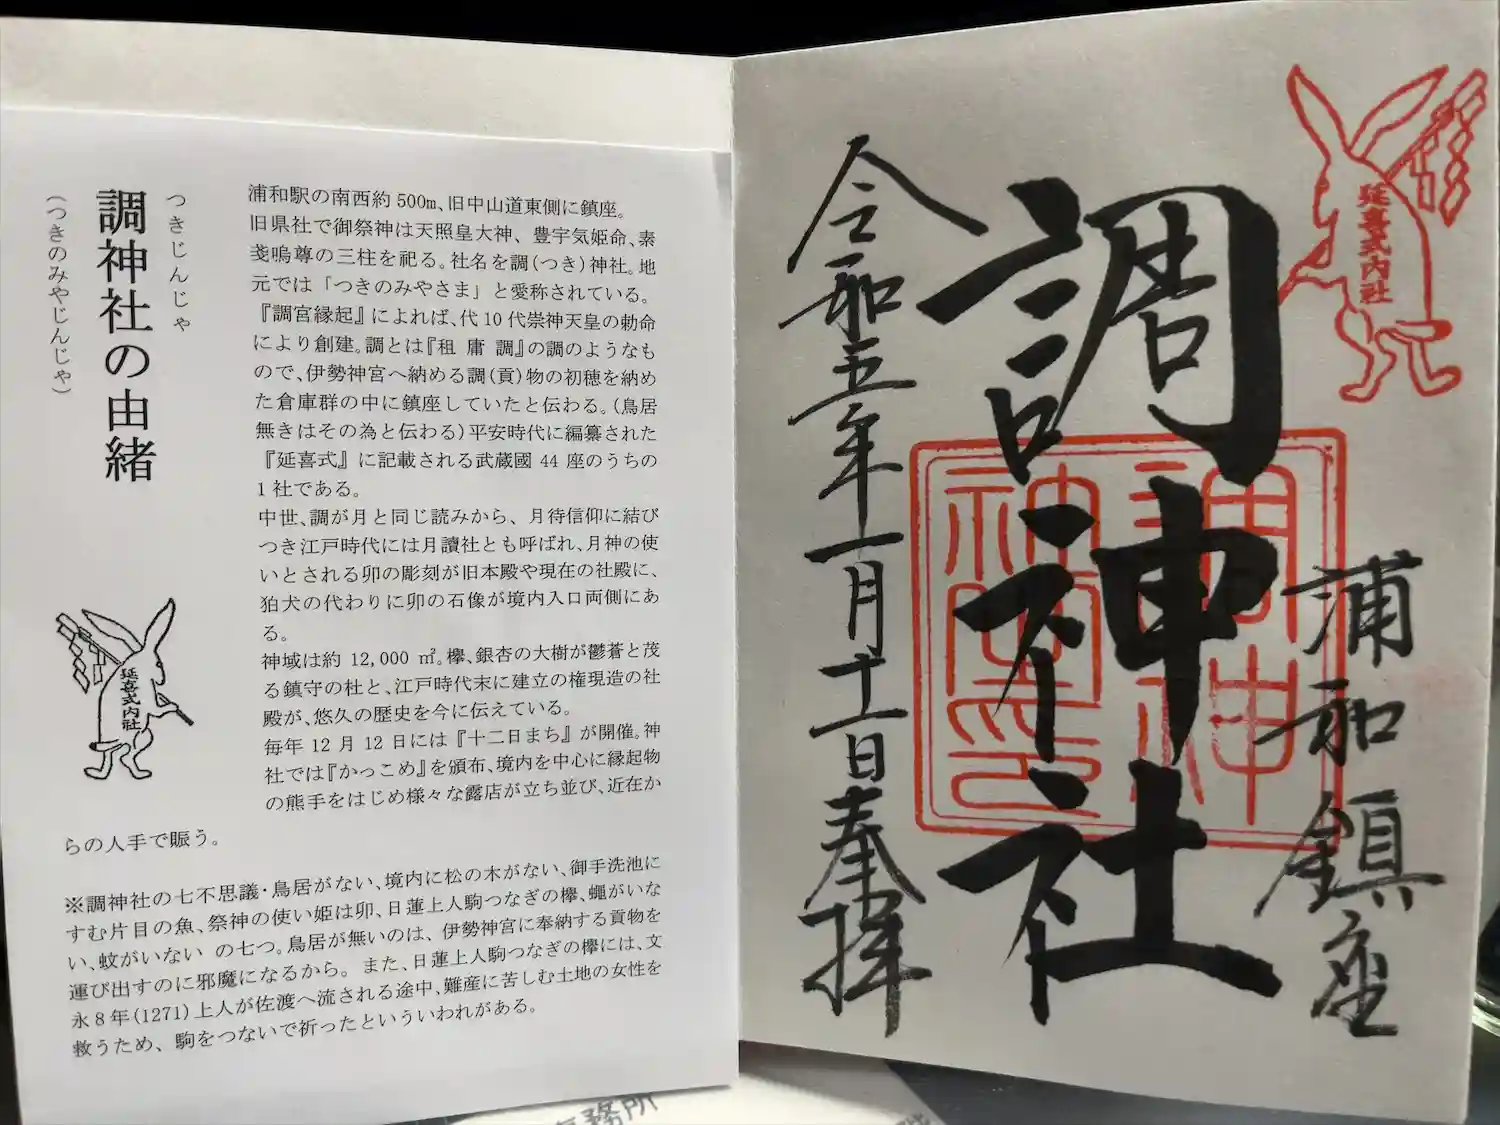 つきじんじゃ
調神社の由緒
(つきのみやじんじゃ)
浦和駅の南西約500m、旧中山道東側に鎮座。
旧県社で御祭神は天照皇大神、豊宇気姫命、素
戔嗚尊の三柱を祀る。社名を調(つき)神社。地
元では「つきのみやさま」と愛称されている。
『調宮縁起』によれば、代10代崇神天皇の勅命
により創建。調とは『租 庸 調』の調のようなも
ので、伊勢神宮へ納める調(貢)物の初穂を納め
た倉庫群の中に鎮座していたと伝わる。(鳥居
無きはその為と伝わる)平安時代に編纂された
『延喜式』に記載される武蔵國44座のうちの
1社である。
中世、調が月と同じ読みから、月待信仰に結び
つき江戸時代には月讀社とも呼ばれ、月神の使
いとされる卯の彫刻が旧本殿や現在の社殿に、
狛犬の代わりに卯の石像が境内入口両側にあ
る。
神域は約12,000㎡。欅、銀杏の大樹が鬱蒼と茂
る鎮守の杜と、江戸時代末に建立の権現造の社
殿が、悠久の歴史を今に伝えている。
毎年12月12日には『十二日まち』が開催。神
社では『かっこめ』を頒布、境内を中心に縁起物
の熊手をはじめ様々な露店が立ち並び、近在か
らの人手で賑う。
延喜式内社
※調神社の七不思議・鳥居がない、境内に松の木がない、御手洗池に
すむ片目の魚、祭神の使い姫は卯、日蓮上人駒つなぎの欅、蠅がいな
い、蚊がいない の七つ。鳥居が無いのは、伊勢神宮に奉納する貢物を
運び出すのに邪魔になるから。また、日蓮上人駒つなぎの欅には、文
永8年(1271)上人が佐渡へ流される途中、難産に苦しむ土地の女性を
救うため、駒をつないで祈ったといういわれがある。
延喜式内社
浦和鎮座
調神社
調神社
令和五年一月十一日奉拝
務所